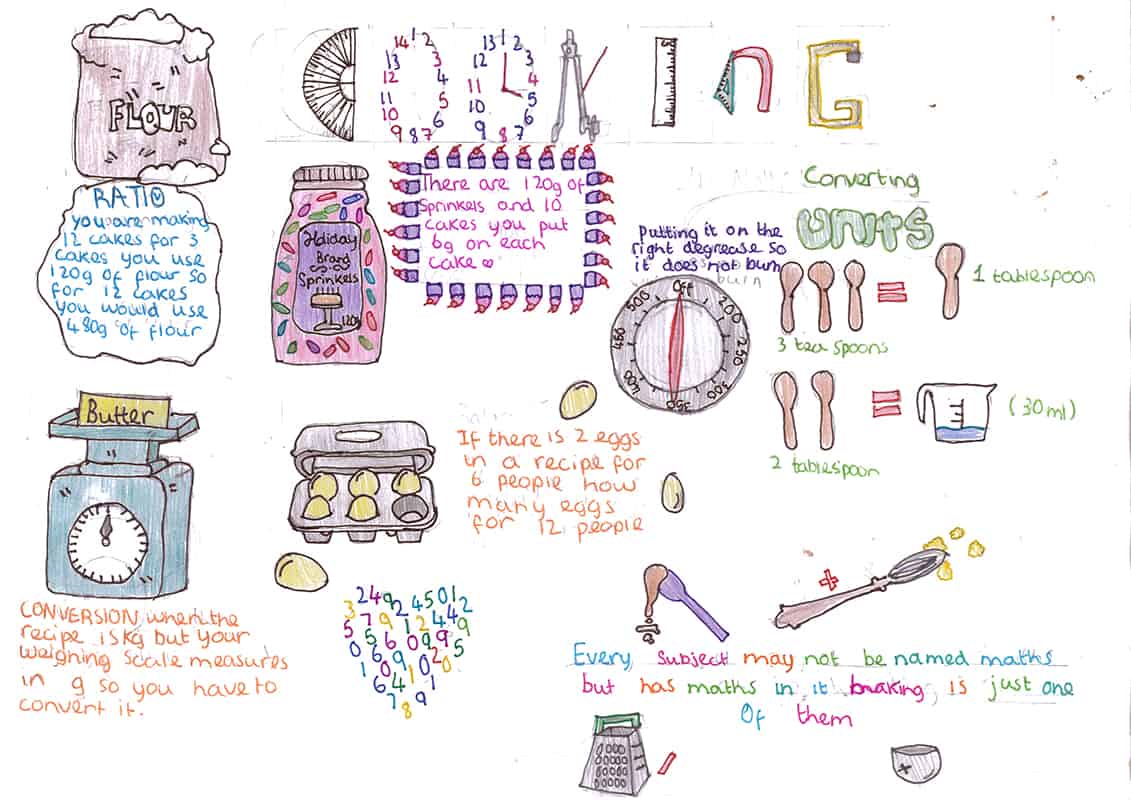 COOKInG
14 1 2
13 3
12 4
11 5
10 6
9 8 7
13 1 2
12 3
11 4
10 5
9 8 7 6
FLOUR
RATIO
you are making
12 cakes for 3
cakes you use
120g of flour so
for 12 cakes
you would use
480g of flour
Holiday
Brand
Sprinkels
120g
There are 120g of
Sprinkels and 10
cakes you put
6g on each
cake
putting it on the
right degrease so
it does not burn
burn
Off
200
250
300
350
400
450
500
Converting
UNITS
= 1 tablespoon
3 tea spoons
= (30ml)
2 tablespoon
Butter
CONVERSION when the
recipe is kg but your
weighing scale measures
in g so you have to
convert it.
If there is 2 eggs
in a recipe for
6 people how
many eggs
for 12 people
+
Every subject may not be named maths
but has maths in it braking is just one
Of them
+